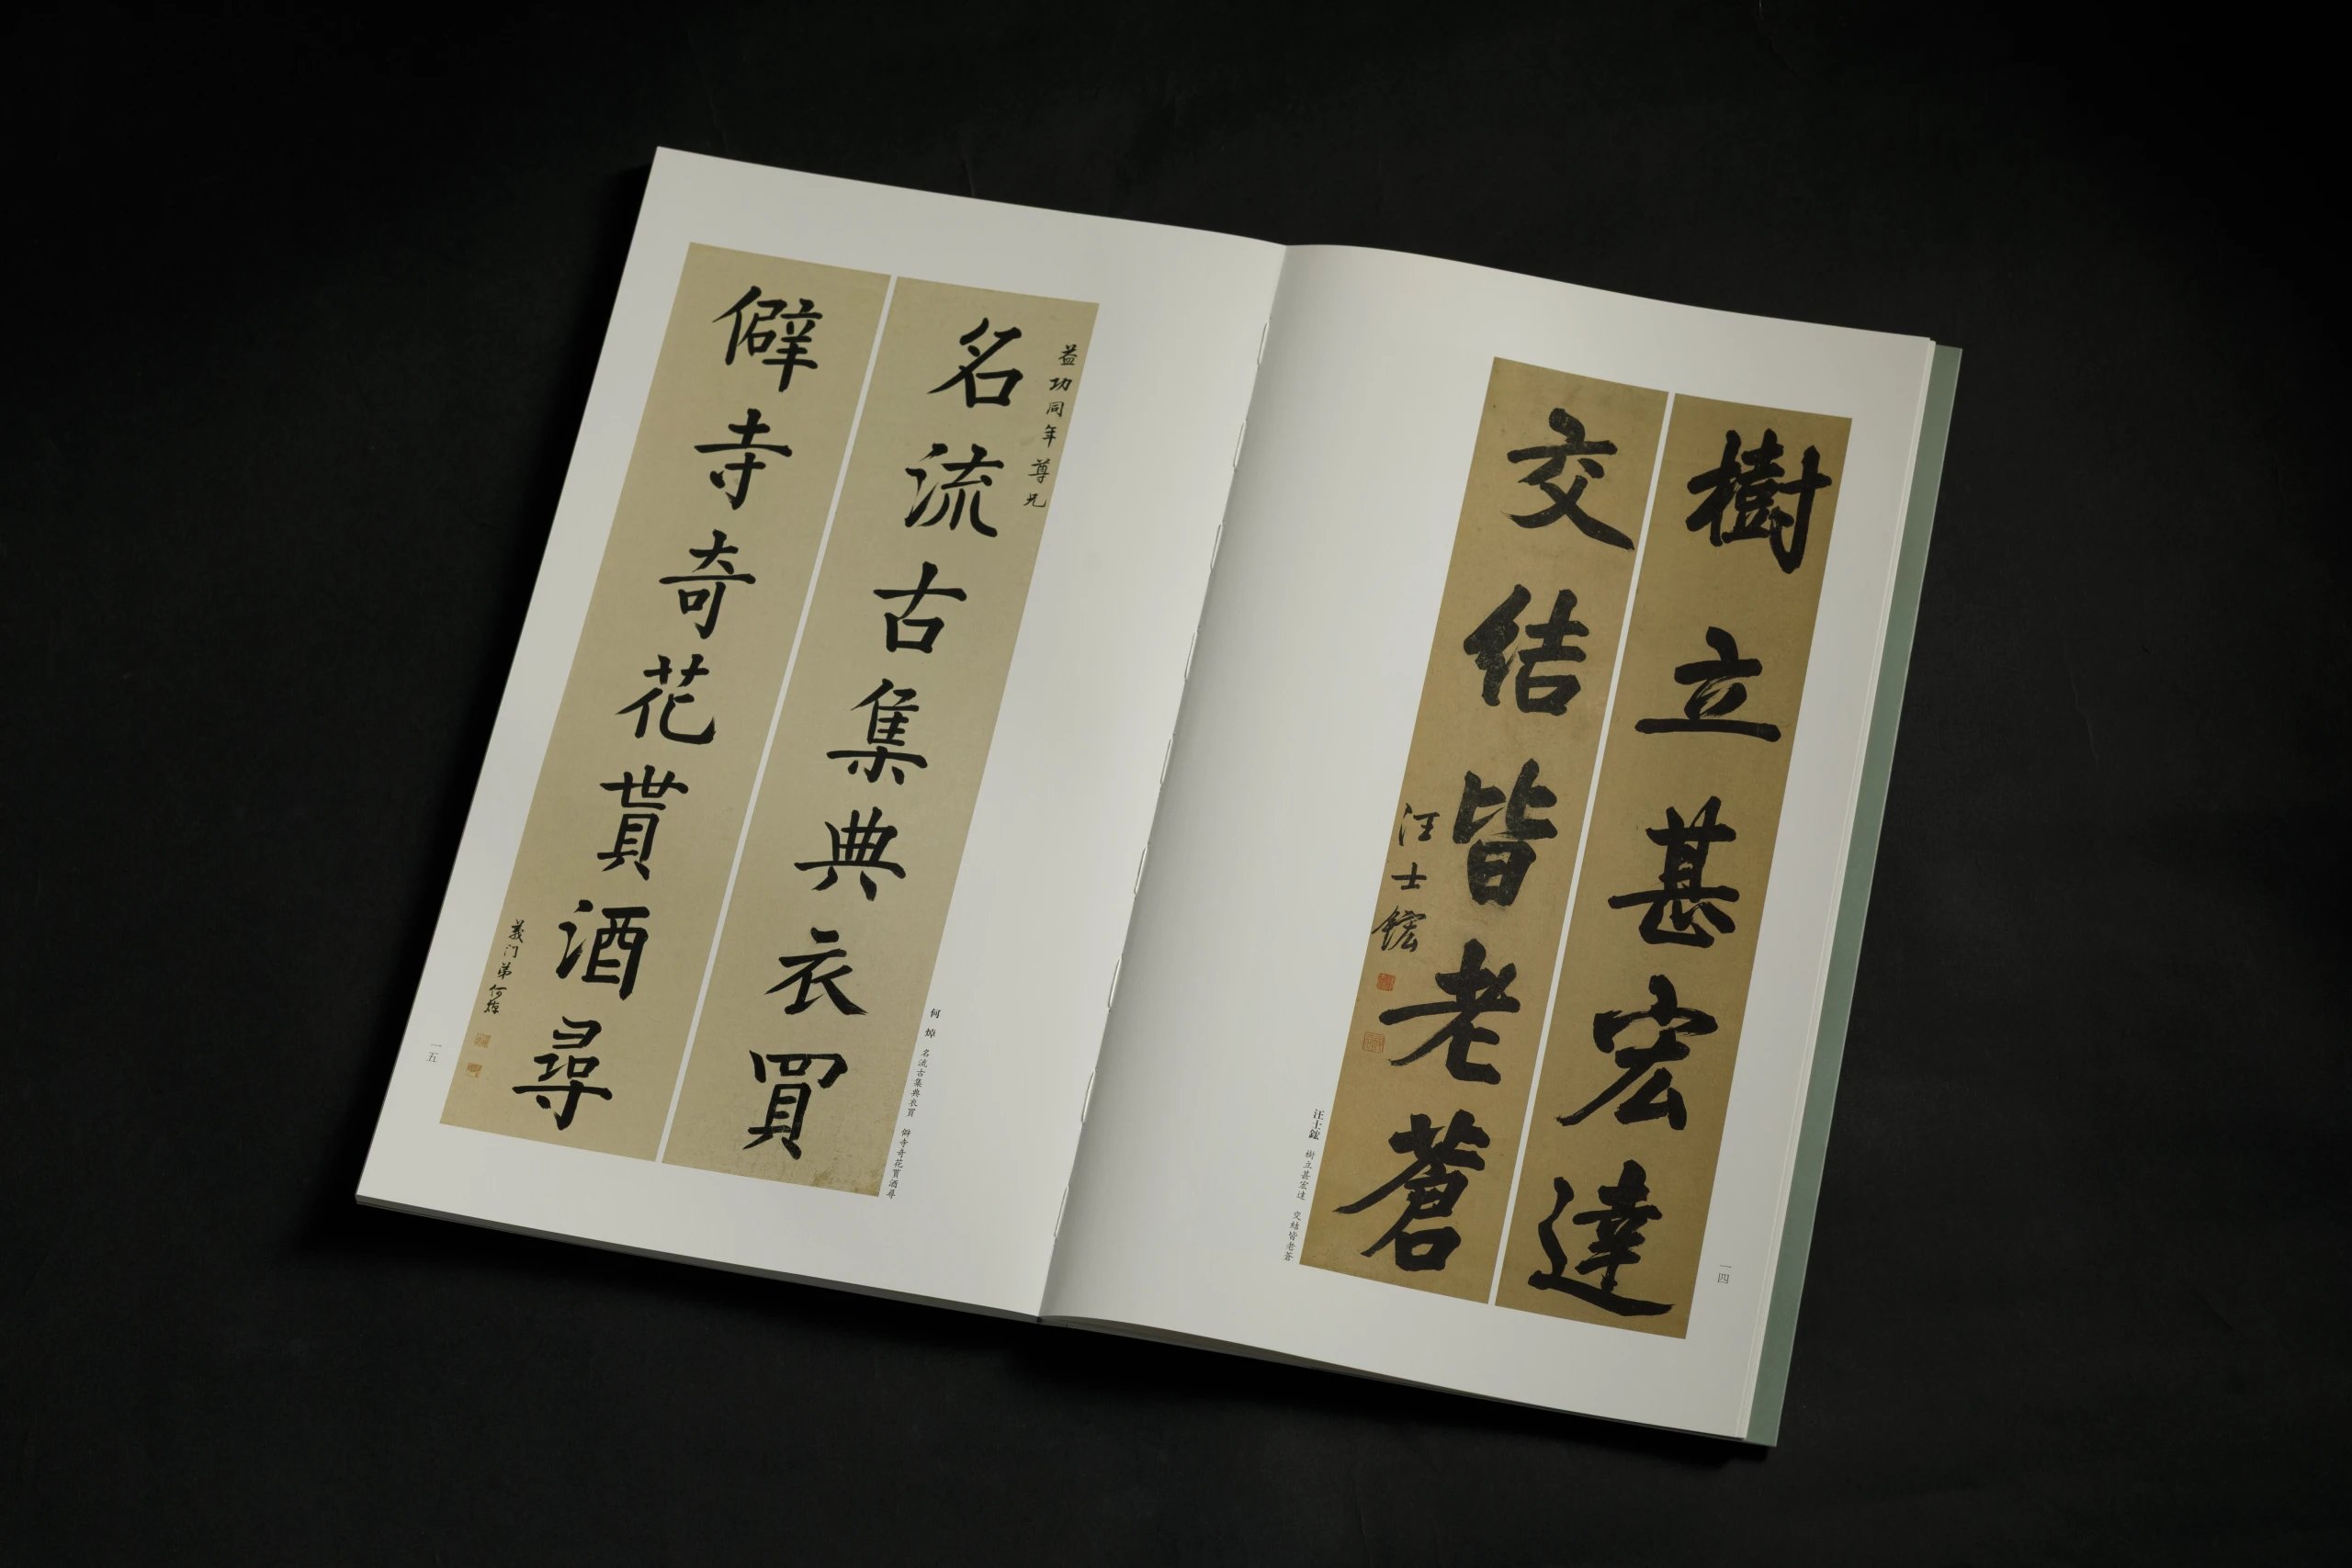 樹立甚宏達
交結皆老蒼
汪士鋐
汪士鋐 樹立甚宏達 交結皆老蒼
一四
益功同年尊兄
名流古集典衣買
僻寺奇花貰酒尋
義门弟何焯
何焯 名流古集典衣買 僻寺奇花貰酒尋
一五